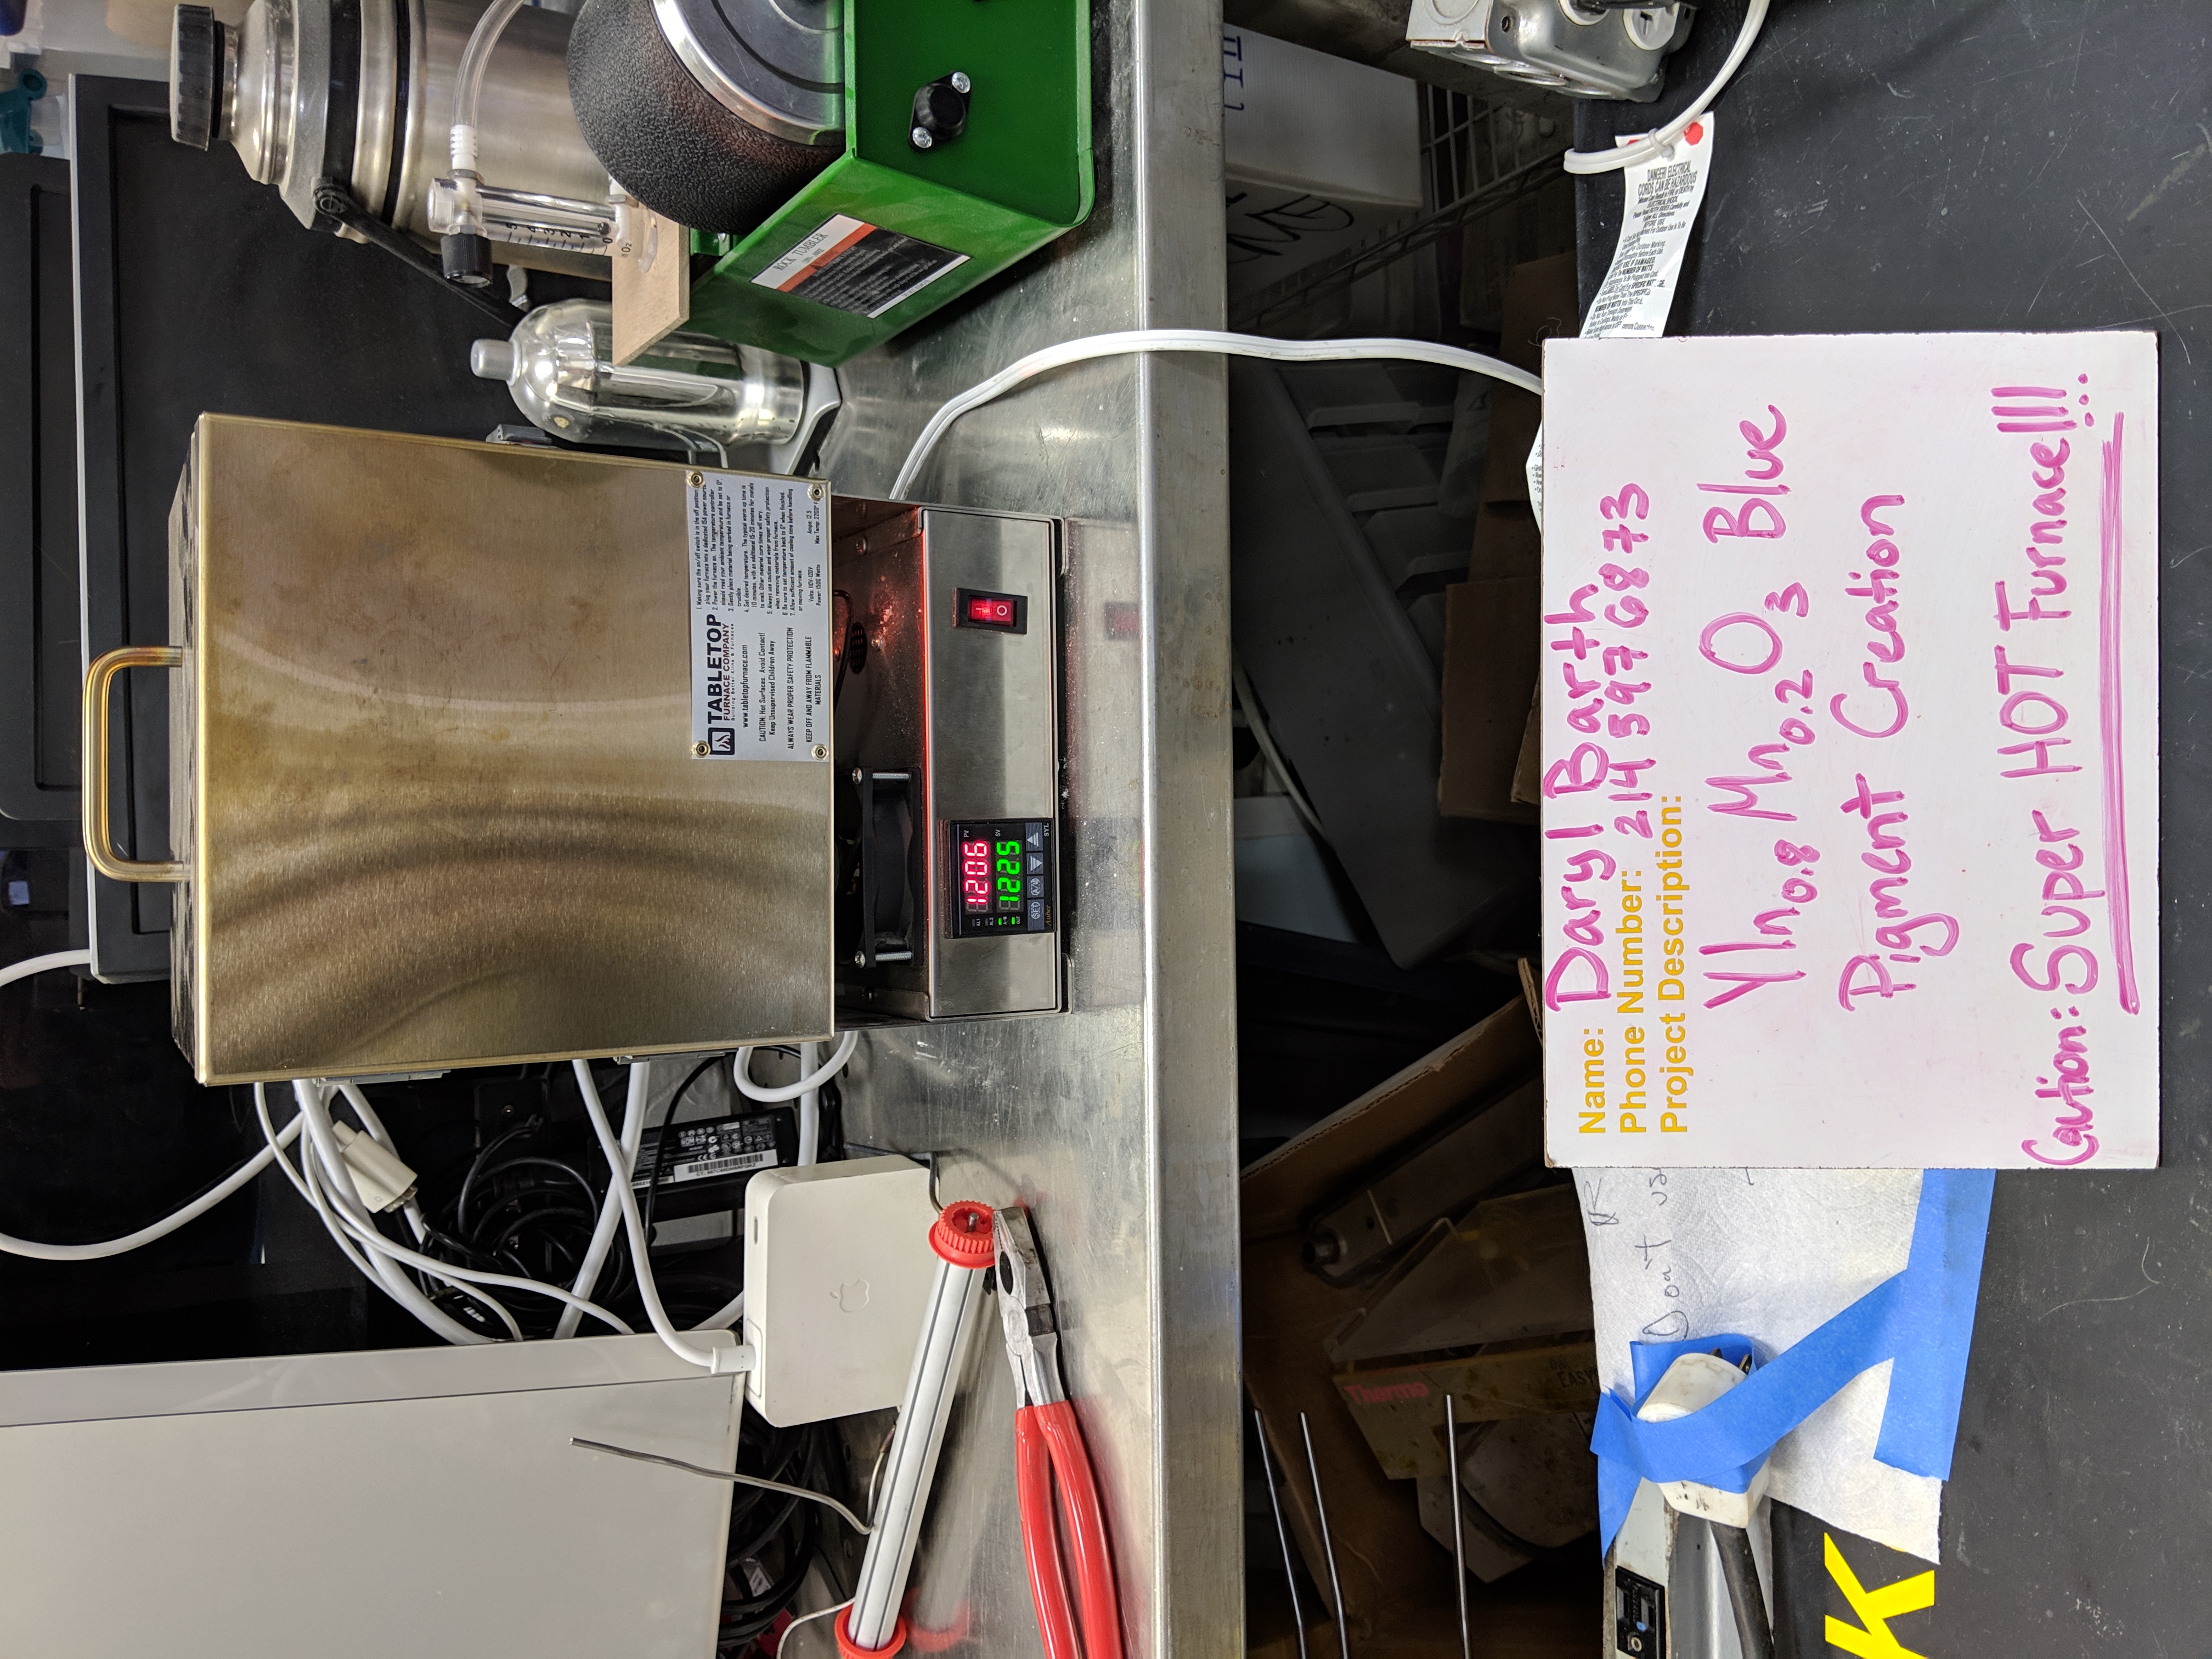 TABLETOP
FURNACE COMPANY
Building Better Kilns & Furnaces
www.tabletopfurnace.com
CAUTION: Hot Surfaces. Avoid Contact!
Keep Unsupervised Children Away
ALWAYS WEAR PROPER SAFETY PROTECTION
KEEP OFF AND AWAY FROM FLAMMABLE
MATERIALS
1. Making sure the on/off switch is in the off position:
plug your furnace into a dedicated 15A power source.
2. Power the furnace on. The temperature controller
should read your ambient temperature and be set to 0°.
3. Gently place material being worked in furnace or
crucible.
4. Set desired temperature. The typical warm up time is
10 minutes, with an additional 15-20 minutes for metals
to melt. Other material cure times will vary.
5. Always use caution and wear proper safety protection
when removing materials from furnace.
6. Be sure to set temperature back to 0° when finished.
7. Allow sufficient amount of cooling time before handling
or moving furnace.
Volts: 110V-120V Amps: 12.5
Power: 1500 Watts Max Temp: 2200° F
ROCK TUMBLER
O2
AL1 1206 PV
AL2
A-M 1225 SV
OUT
SET A/M
Auber SYL
Thermo
Don't use
K
Name: Daryl Barth
Phone Number: 214 597 6873
Project Description:
YIn0.8Mn0.2O3 Blue
Pigment Creation
Caution: Super HOT Furnace!!!